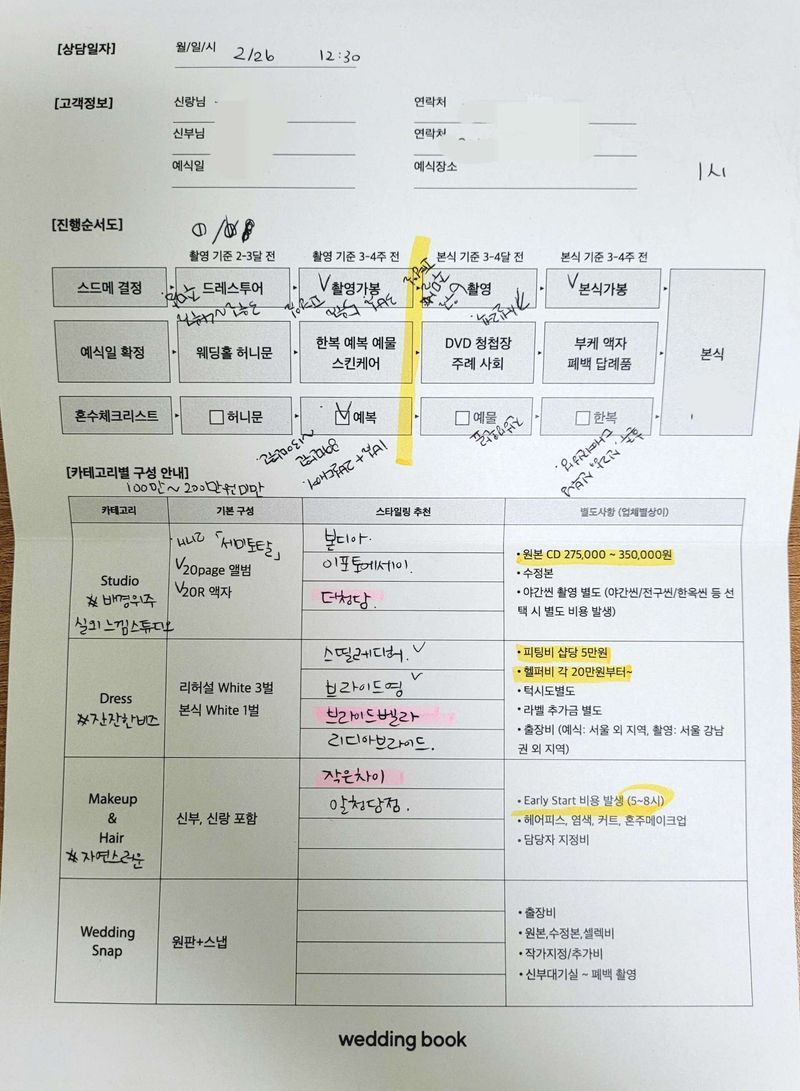 [상담일자] 월/일/시 2/26 12:30
[고객정보] 신랑님 연락처
신부님 연락처
예식일 예식장소 1시
[진행순서도]
촬영 기준 2-3달 전 촬영 기준 3-4주 전 본식 기준 3-4달 전 본식 기준 3-4주 전
스드메 결정 드레스투어 촬영가봉 촬영 본식가봉
예식일 확정 웨딩홀 허니문 한복 예복 예물 스킨케어 DVD 청첩장 주례 사회 부케 액자 폐백 답례품 본식
혼수체크리스트 허니문 예복 예물 한복
[카테고리별 구성 안내]
100만~200만원미만
카테고리 기본 구성 스타일링 추천 별도사항 (업체별상이)
Studio
* 배경위주
실외느낌스튜디오
「세미토탈」
20page 앨범
20R 액자
본디아.
이포토에세이.
더청담.
• 원본 CD 275,000 ~ 350,000원
• 수정본
• 야간씬 촬영 별도 (야간씬/전구씬/한옥씬 등 선
택 시 별도 비용 발생)
Dress
*잔잔한비즈
리허설 White 3벌
본식 White 1벌
스띨레디버.
브라이드영
브라이드벨라
리디아브라이드.
• 피팅비 샵당 5만원
• 헬퍼비 각 20만원부터~
• 턱시도별도
• 라벨 추가금 별도
• 출장비 (예식: 서울 외 지역, 촬영: 서울 강남
권 외 지역)
Makeup
&
Hair
*자연스러운
신부, 신랑 포함
작은차이
알청담점.
• Early Start 비용 발생 (5~8시)
• 헤어피스, 염색, 커트, 혼주메이크업
• 담당자 지정비
Wedding
Snap
원판+스냅
• 출장비
• 원본,수정본,셀렉비
• 작가지정/추가비
• 신부대기실 ~ 폐백 촬영
wedding book